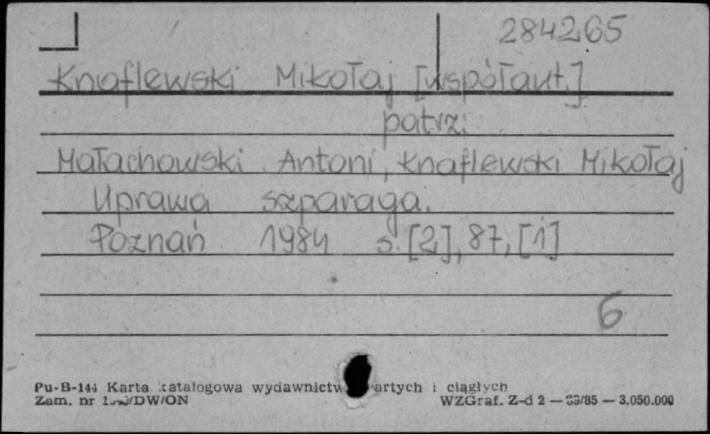 284265
Knaflewski Mikołaj [współaut.]
patrz:
Małachowski Antoni, Knaflewski Mikołaj
Uprawa szparaga.
Poznań 1984 s. [2], 87, [1]
6
Pu-B-144 Karta katalogowa wydawnictw zwartych i ciągłych
Zam. nr /DW/ON WZGraf. Z-d 2 — /85 — 3.050.000